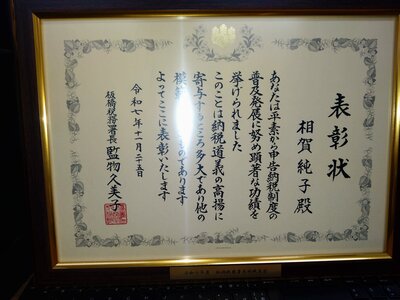 表彰状
相賀純子殿
あなたは平素から申告納税制度の
普及発展に努め顕著な功績を
挙げられました
このことは納税道義の高揚に
寄与するところ多大であり他の
模範とするものであります
よってここに表彰いたします
令和七年十一月二十五日
板橋税務署長 監物久美子